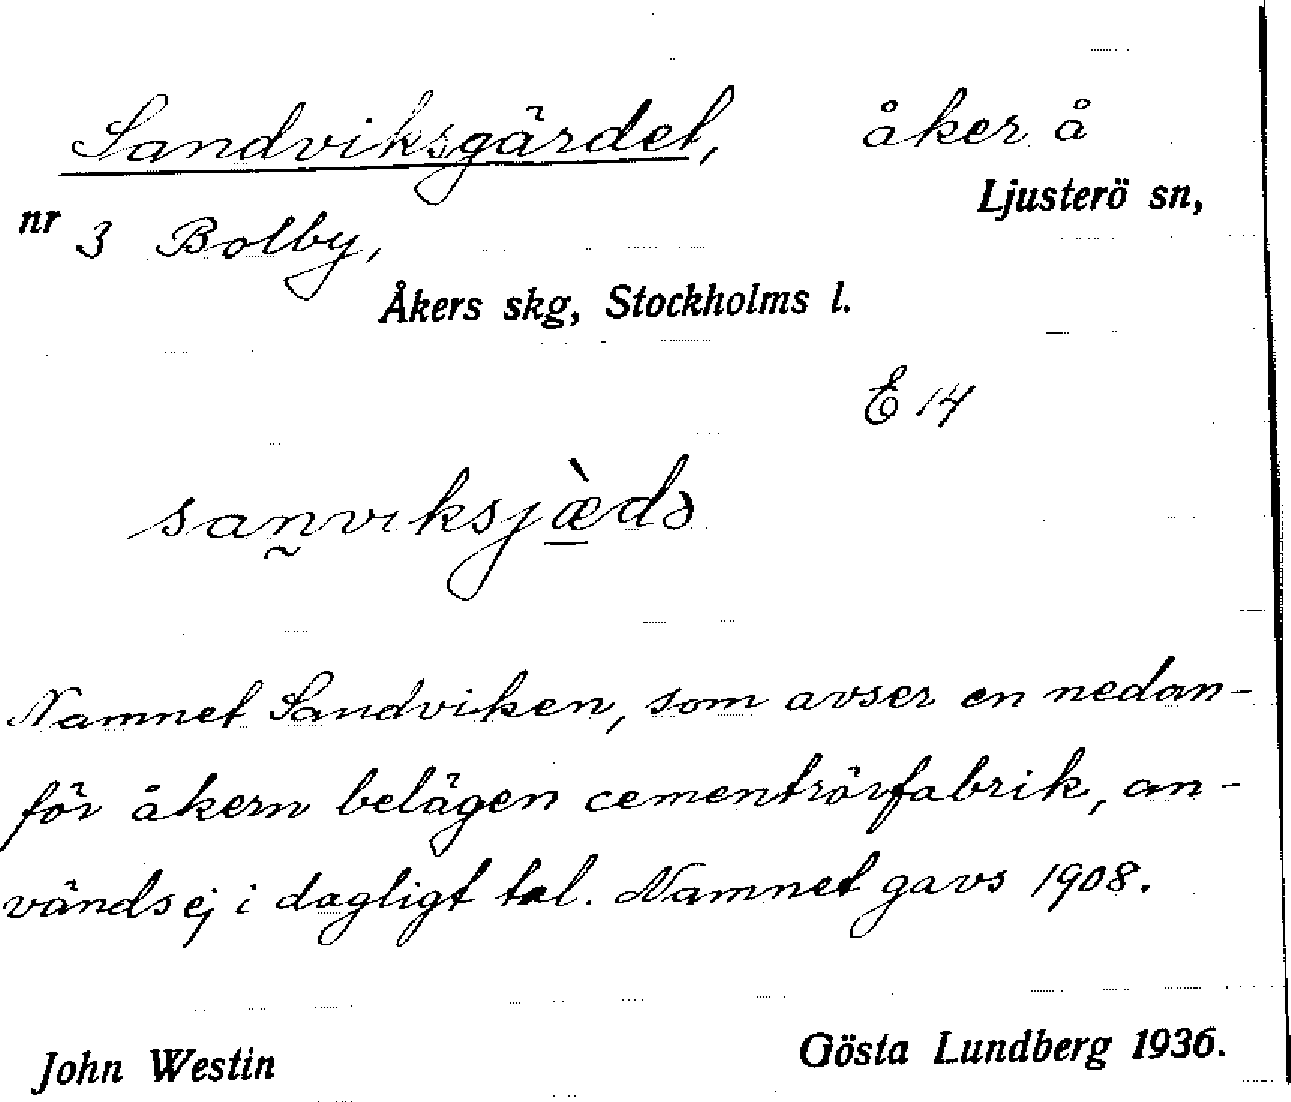 Sandviksgärdet, åker å
Ljusterö sn,
nr 3 Bolby,
Åkers skg, Stockholms l.
E 14
san̰viksjæ̠̀də
Namnet Sandviken, som avser en nedan-
för åkern belägen cementrörfabrik, an-
vänds ej i dagligt tal. Namnet gavs 1908.
John Westin Gösta Lundberg 1936.